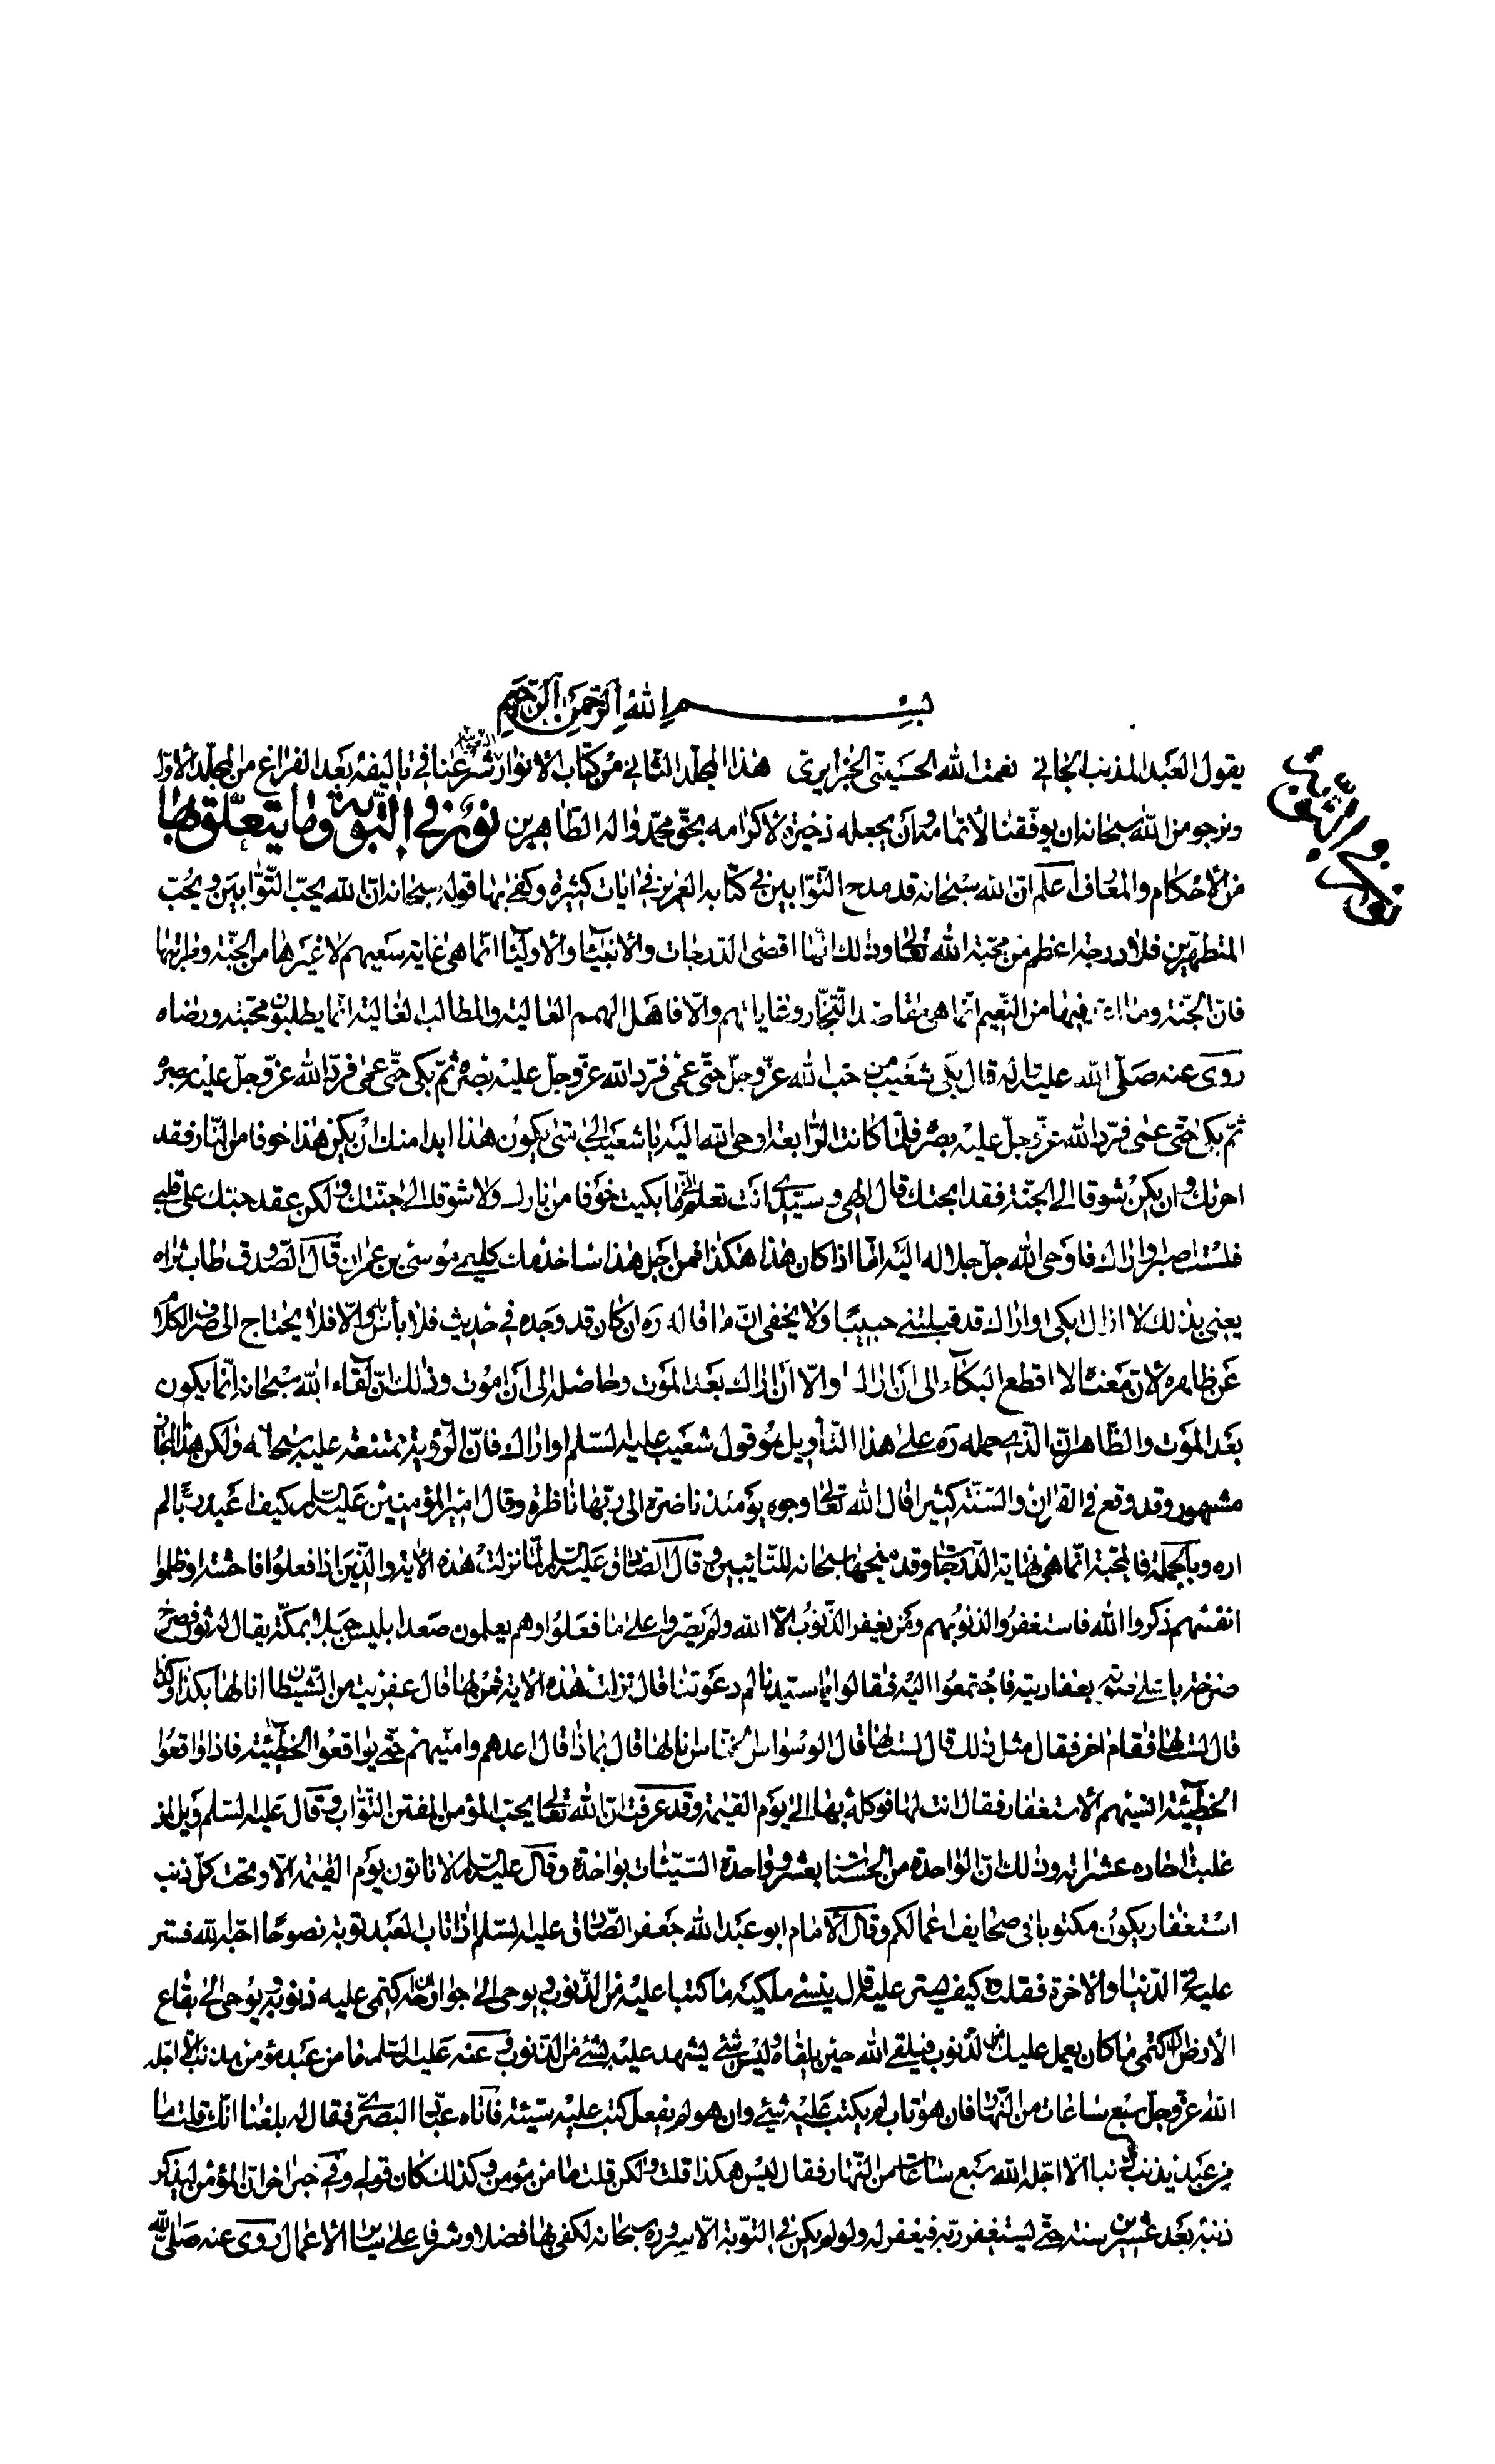 بسم الله الرحمن الرحيم
يقول العبد المذنب الجاني نعمت الله الحسيني الجزايري هذا المجلد الثاني من كتاب الانوار شرعنا في تاليفه بعد الفراغ من المجلد الاول
ونرجو من الله سبحانه ان يوفقنا لاتمامه وان يجعله ذخيرة لاكرامه بحق محمد واله الطاهرين نور في التوبة وما يتعلق بها
من الاحكام والمعارف اعلم ان الله سبحانه قد مدح التوابين في كتابه العزيز في ايات كثيرة وكفى بها قوله سبحانه ان الله يحب التوابين ويحب
المتطهرين فلا درجة اعظم من محبة الله تعالى وذلك انها اقصى الدرجات والانبياء والاولياء انما هي غاية سعيهم لا غيرها من الجنة
فان الجنة وما فيها من النعيم انما هي مقاصد التجار وغاياتهم والا فاهل الهمم العالية والمطالب الغالية انما يطلبون محبته ورضاه
روى عنه صلى الله عليه واله قال بكى شعيب من حب الله عز وجل حتى عمى فرد الله عز وجل عليه بصره ثم بكى حتى عمى فرد الله عز وجل عليه بصره
ثم بكى حتى عمى فرد الله عز وجل عليه بصره فلما كانت الرابعة اوحى الله اليه يا شعيب الى متى يكون هذا ابدا منك ان يكن هذا خوفا من النار فقد
اجرتك وان يكن شوقا الى الجنة فقد ابحتك قال الهي وسيدي انت تعلم اني ما بكيت خوفا من نارك ولا شوقا الى جنتك ولكن عقد حبك على قلبي
فلست اصبر او اراك فاوحى الله جل جلاله اليه اما اذا كان هذا هكذا فمن اجل هذا ساخدمك كليمي موسى بن عمران قال الصدوق طاب ثراه
يعني بذلك لا ازال ابكي او اراك قد قبلتني حبيبا ولا يخفى ان ما قاله ره ان كان قد وجده في حديث فلا بأس والا فلا يحتاج الى صرف الكلام
عن ظاهره لان معناه لا اقطع البكاء الى ان اراك والا ان اراك بعد الموت وحاصله الى ان اموت وذلك ان لقاء الله سبحانه انما يكون
بعد الموت والظاهر ان الذي حمله ره على هذا التأويل هو قول شعيب عليه السلم او اراك فان الرؤية ممتنعة عليه سبحانه ولكن هذا المجاز
مشهور وقد وقع في القران والسنة كثيرا قال الله تعالى وجوه يومئذ ناضرة الى ربها ناظرة وقال امير المؤمنين عليه السلم كيف اعبد ربا لم
اره وبالجملة فالمحبة انما هي نهاية الدرجات وقد منحها سبحانه للتائبين وقال الصادق عليه السلم لما نزلت هذه الاية والذين اذا فعلوا فاحشة او ظلموا
انفسهم ذكروا الله فاستغفروا لذنوبهم ومن يغفر الذنوب الا الله ولم يصروا على ما فعلوا وهم يعلمون صعد ابليس جبلا بمكة يقال له ثور فصرخ
باعلى صوته بعفاريته فاجتمعوا اليه فقالوا يا سيدنا لم دعوتنا قال نزلت هذه الاية فمن لها قال عفريت من الشيطان انا لها بكذا وكذا
قال لست لها فقام اخر فقال مثل ذلك قال لست لها قال الوسواس الخناس انا لها قال بماذا قال اعدهم وامنيهم حتى يواقعوا الخطيئة فاذا واقعوا
الخطيئة انسيتهم الاستغفار فقال انت لها فوكله بها الى يوم القيمة وقد عرفت ان الله تعالى يحب المؤمن المفتن التواب وقال عليه السلم ويل لمن
غلبت احاده عشراته وذلك ان الواحدة من الحسنات بعشر وواحدة السيئات بواحدة وقال عليه السلم لا تاتون يوم القيمة الا وتحت كل ذنب
استغفار يكون مكتوبا في صحايف اعمالكم وقال الامام ابو عبد الله جعفر الصادق عليه السلم اذا تاب العبد توبة نصوحا احبه الله فستر
عليه في الدنيا والاخرة فقلت كيف يستر عليه قال ينسى ملكيه ما كتبا عليه من الذنوب ويوحى الى جوارحه اكتمى عليه ذنوبه ويوحى الى بقاع
الارض اكتمى ما كان يعمل عليك من الذنوب فيلقى الله حين يلقاه وليس شئ يشهد عليه بشئ من الذنوب وعنه عليه السلم ما من عبد مؤمن يذنب الا اجله
الله عز وجل سبع ساعات من النهار فان هو تاب لم يكتب عليه شئ وان هو لم يفعل كتب عليه سيئة فاتاه عباد البصري فقال له بلغنا انك قلت ما
من عبد يذنب ذنبا الا اجله الله سبع ساعات من النهار فقال ليس هكذا قلت ولكن قلت ما من مؤمن وكذلك كان قولي وفي خبر اخر ان المؤمن ليذكر
ذنبه بعد عشرين سنة حتى يستغفر ربه فيغفر له ولو لم يكن في التوبة الا سروره سبحانه لكفى بها فضلا وشرفا على سائر الاعمال روى عنه صلى الله